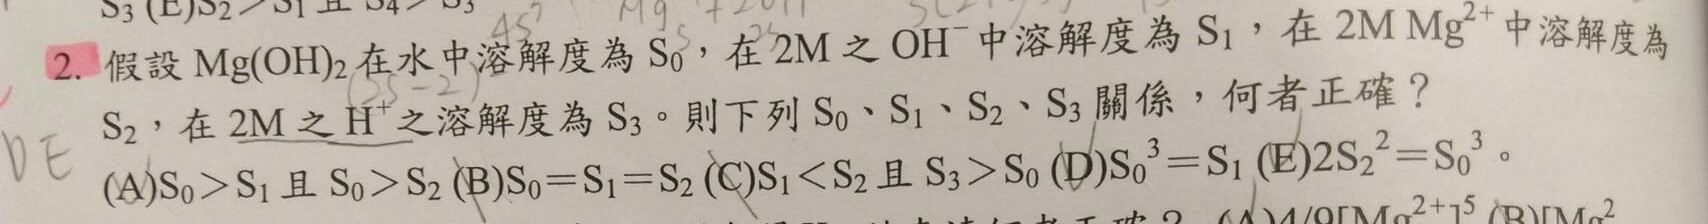 S₃ (E)S₂>S₁ 且 S₄>S₃
2. 假設 Mg(OH)₂ 在水中溶解度為 S₀，在 2M 之 OH⁻ 中溶解度為 S₁，在 2M Mg²⁺ 中溶解度為
S₂，在 2M 之 H⁺ 之溶解度為 S₃。則下列 S₀、S₁、S₂、S₃ 關係，何者正確？
DE
(A)S₀>S₁ 且 S₀>S₂ (B)S₀=S₁=S₂ (C)S₁<S₂ 且 S₃>S₀ (D)S₀³=S₁ (E)2S₂²=S₀³。